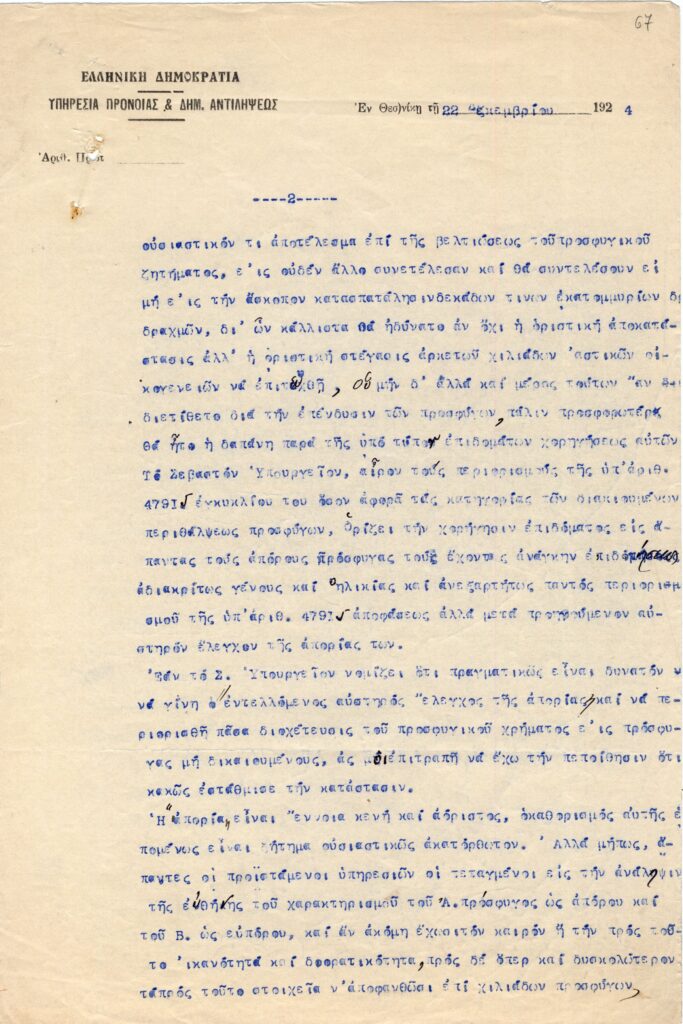 67
ΕΛΛΗΝΙΚΗ ΔΗΜΟΚΡΑΤΙΑ
ΥΠΗΡΕΣΙΑ ΠΡΟΝΟΙΑΣ & ΔΗΜ. ΑΝΤΙΛΗΨΕΩΣ
Ἐν Θεσ)νίκῃ τῇ 22 Δεκεμβρίου 1924
Ἀριθ. Πρωτ
----2-----
οὐσιαστικόν τι ἀποτέλεσμα ἐπί τῆς βελτιώσεως τοῦπροσφυγικοῦ
ζητήματος, ε'ις οὐδέν ἄλλο συνετέλεσαν καί θά συντελέσουν εἰ
μή ε'ις τήν ἄσκοπον κατασπατάλησινδεκάδων τινων ἑκατομμυρίων δ
δραχμῶν, δι' ὧν κάλλιστα θά ἠδύνατο ἄν ὄχι ἡ ὁριστική ἀποκατά-
στασις ἀλλ' ἡ ὁριστική στέγασις ἀρκετοῦ χιλιάδων 'αστικῶν οἰ-
κογενειῶν νά ἐπιτευχθῇ, οὐ μήν δ' ἀλλά καί μέρος τούτων "αν
διετίθετο διά τήν ἐπένδυσιν τῶν προσφύγων, πάλιν προσφορωτέρα
θά ἦτο ἡ δαπάνη παρά τῆς ὑπό τύπον ἐπιδομάτων χορηγήσεως αὐτῶν
Τό Σεβαστόν Ὑπουργεῖον, αἶρον τούς περιορισμούς τῆς ὑπ'ἀριθ.
4791 ἐγκυκλίου του ὅσον ἀφορᾶ τάς κατηγορίας τῶν δικαιουμένων
περιθάλψεως προσφύγων, Ὁρίζει τήν χορήγησιν ἐπιδόματος εἰς ἅ-
παντας τούς ἀπόρους πρόσφυγας τούς ἔχοντας ἀνάγκην
ἀδιακρίτως γένους καί ἡλικίας καί ἀνεξαρτήτως παντός περιορισμ
σμοῦ τῆς ὑπ'ἀριθ. 4791 ἀποφάσεως ἀλλά μετά προηγούμενον αὐ-
στηρόν ἔλεγχον τῆς ἀπορίας των.
Ἐάν τό Σ. Ὑπουργεῖον νομίζει ὅτι πραγματικῶς εἶναι δυνατόν ν
νά γίνῃ ὁ ἐντελλόμενος αὐστηρός "ελεγχος τῆς ἀπορίας καί νά πε-
ριορισθῇ πᾶσα διοχέτευσις τοῦ προσφυγικοῦ χρήματος ε'ις πρόσφυ-
γας μή δικαιουμένους, ἄς μοι ἐπιτραπῇ νά ἔχω τήν πεποίθησιν ὅτι
κακῶς ἐστάθμισε τήν κατάστασιν.
Ἡ "ἀπορία" εἶναι "εννοια κενή καί ἀόριστος, ὁκαθορισμός αὐτῆς ἑ
πομένως εἶναι ζήτημα οὐσιαστικῶς ἀκατόρθωτον. Ἀλλά μήπως, ἅ-
παντες οἱ προϊστάμενοι ὑπηρεσιῶν οἱ τεταγμένοι εἰς τήν ἀνάληψιν
τῆς εὐθύνης τοῦ χαρακτηρισμοῦ τοῦ Α.πρόσφυγος ὡς ἀπόρου καί
τοῦ Β. ὡς εὐπόρου, καί ἄν ἀκόμη ἔχωσιτόν καιρόν ἤ τήν πρός τοῦ-
το 'ικανότητα καί διορατικότητα, πρός δέ ὅπερ καί δυσκολώτερον
τάπρός τοῦτο στοιχεῖα ν'ἀποφανθῶσι ἐπί χιλιάδων προσφύγων,